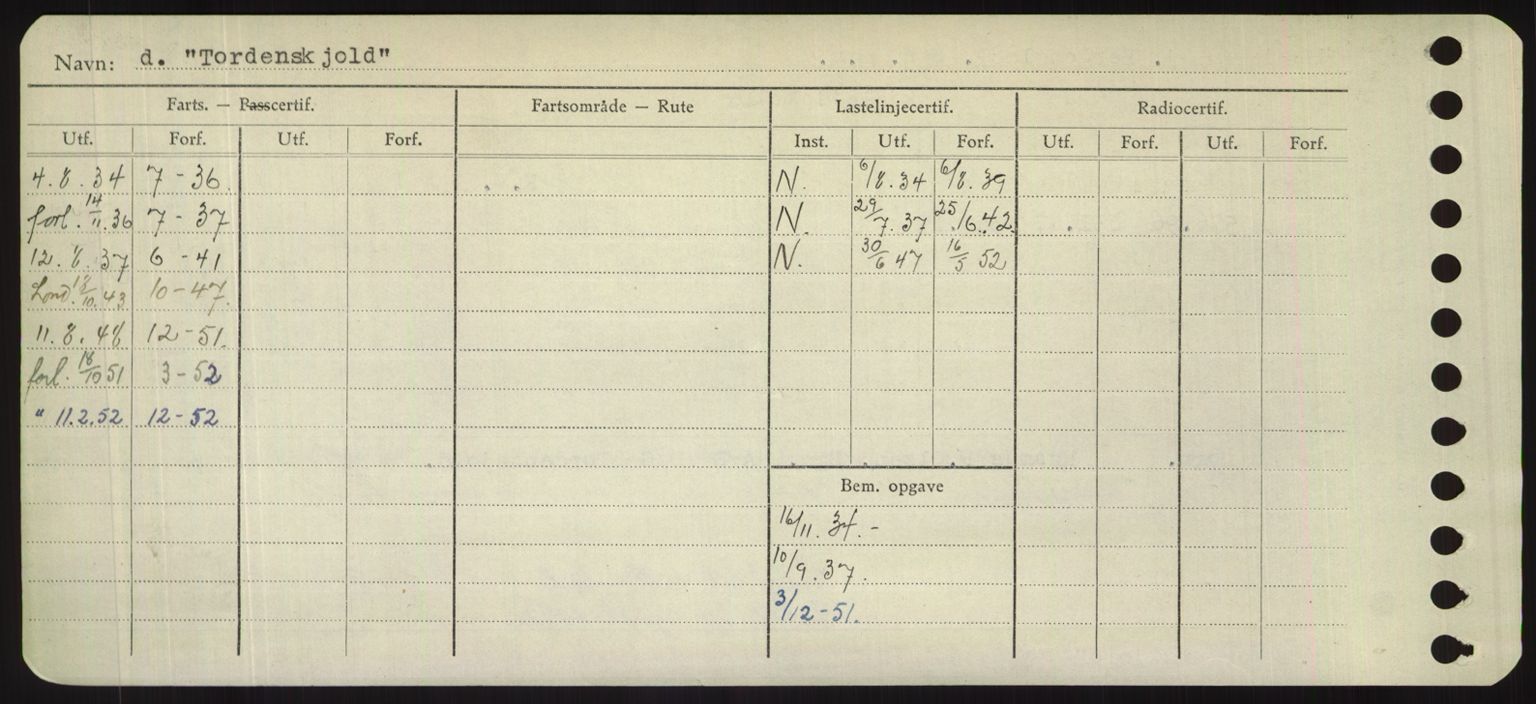 Navn: d. "Tordenskjold"
Farts. — Passcertif. Fartsområde — Rute Lastelinjecertif. Radiocertif.
Utf. Forf. Utf. Forf. Inst. Utf. Forf. Utf. Forf. Utf. Forf.
4.8.34 7-36 N. 6/8.34 6/8.39
forl. 14/11.36 7-37 N. 29/7.37 25/6.42
12.8.37 6-41 N. 30/6 47 16/5 52
Lond. 18/10.43 10-47.
11.8.48 12-51.
forl. 18/10 51 3-52
" 11.2.52 12-52
Bem. opgave
16/11.34.-
10/9.37.
3/12-51.